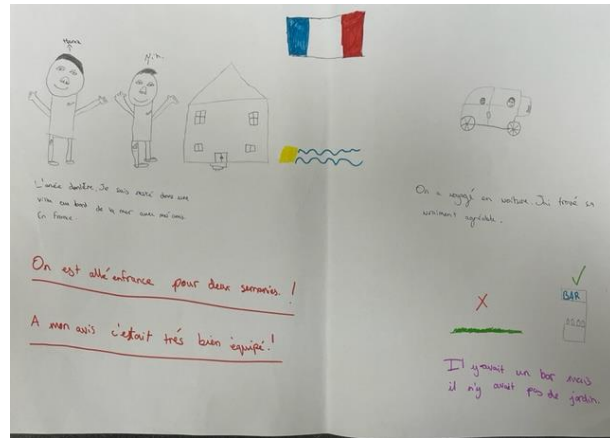 L'anée dernière, Je suis resté dans une
villa au bord de la mer avec mes amis
En France.
On est allé enfrance pour deux semanies.!
A mon avis c'estait trés bien équipé.!
On a voyagé en voiture. J'ai trouvé sa
vraiment agréable.
X
BAR
Il y avait un bar mais
il n'y avait pas de jardin.